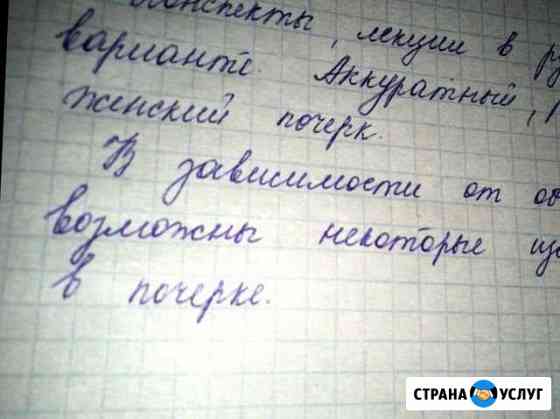 Конспекты, лекции в
варианте. Аккуратный,
женский почерк.
В зависимости от
возможны некоторые
в почерке.
СТРАНА УСЛУГ